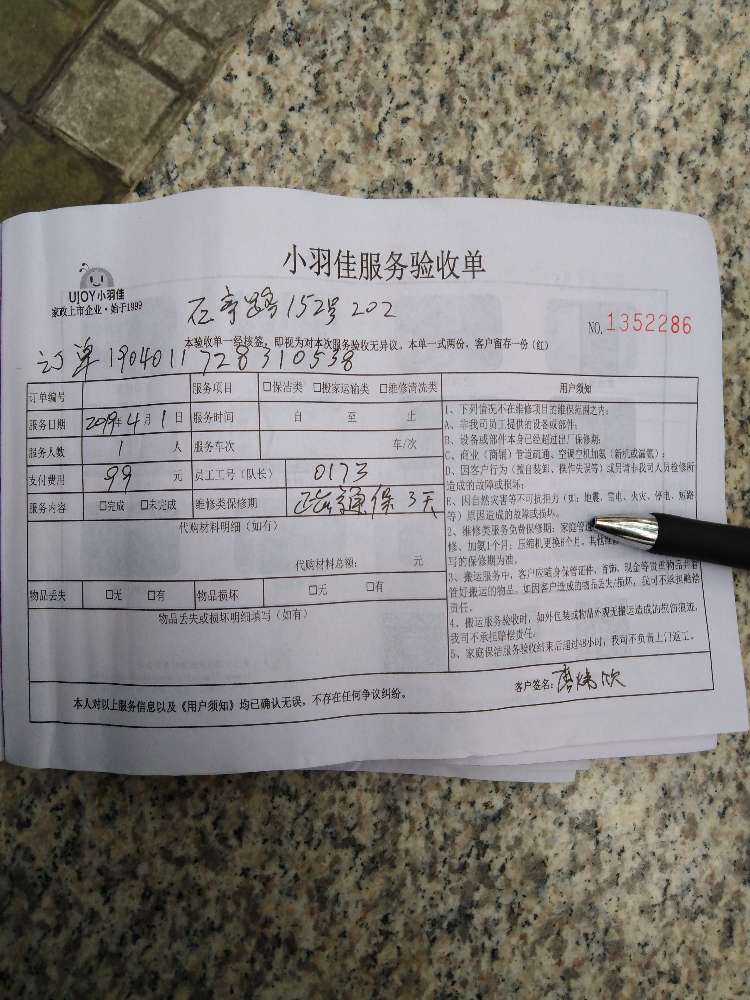 小羽佳服务验收单
UJOY小羽佳
家政上市企业·始于1999
路152号202
NO.1352286
本验收单一经核签,即视为对本次服务验收无异议。本单一式两份,客户留存一份(红)
订单190401172831 0538
订单编号 服务项目 □保洁类 □搬家运输类 □维修清洗类
服务日期 2019年4月1日 服务时间 自 至 止
服务人数 1 人 服务车次 车/次
支付费用 99 元 员工工号(队长) 0173
服务内容 □完成 □未完成 维修类保修期 保3天
代购材料明细(如有)
代购材料总额: 元
物品丢失 □无 □有 物品损坏 □无 □有
物品丢失或损坏明细填写(如有)
用户须知
1、下列情况不在维修项目的维保范围之内:
A、非我司员工提供的设备或部件;
B、设备或部件本身已经超过出厂保修期;
C、商业(商铺)管道疏通、空调空机加氨(新机或漏氨);
D、因客户行为(擅自装卸、操作失误等)或另请非我司人员检修所
造成的故障或损坏;
E、因自然灾害等不可抗拒力(如:地震、雷电、火灾、停电、短路
等)原因造成的故障或损坏。
2、维修类服务免费保修期:家庭管道
修、加氨1个月;压缩机更换6个月、其他维
写的保修期为准。
3、搬运服务中,客户应随身保管证件、首饰、现金等贵重物品并看
管好搬运的物品。如因客户造成的物品丢失/损坏,我司可不承担赔偿
责任。
4、搬运服务验收时,如外包装或物品外观无搬运造成的损伤痕迹,
我司不承担赔偿责任;
5、家庭保洁服务验收结束后超过48小时,我司不负责上门返工。
客户签名:
本人对以上服务信息以及《用户须知》均已确认无误,不存在任何争议纠纷。